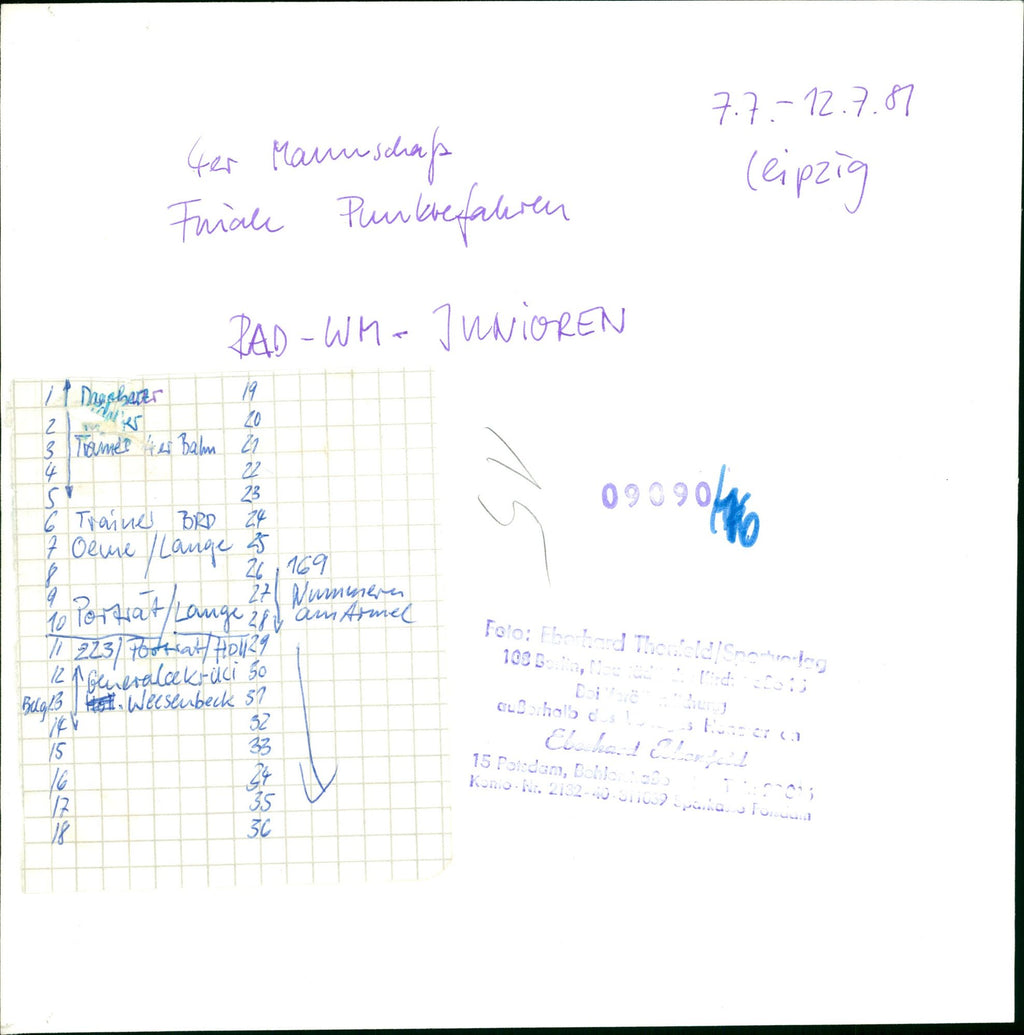 7.7.-12.7.81
Leipzig
4er Mannschaft
Finale Punktefahren
RAD-WM-JUNIOREN
1
2
3 Trainer 4er Bahn
4
5
6 Trainer BRD
7 Oeme/Lange
8
9
10 Porträt/Lange
11 223/Porträt/Holl
12
13 Weesenbeck
14
15
16
17
18
19
20
21
22
23
24
25
26 169
27 Nummern
28 am Ärmel
29
30
31
32
33
34
35
36
51
09090/
Foto: Eberhard Thonfeld/Sportverlag
108 Berlin,
Bei
außerhalb des
Eberhard Thonfeld
15 Potsdam,
Konto-Nr. 2132-40- Sparkasse Potsdam